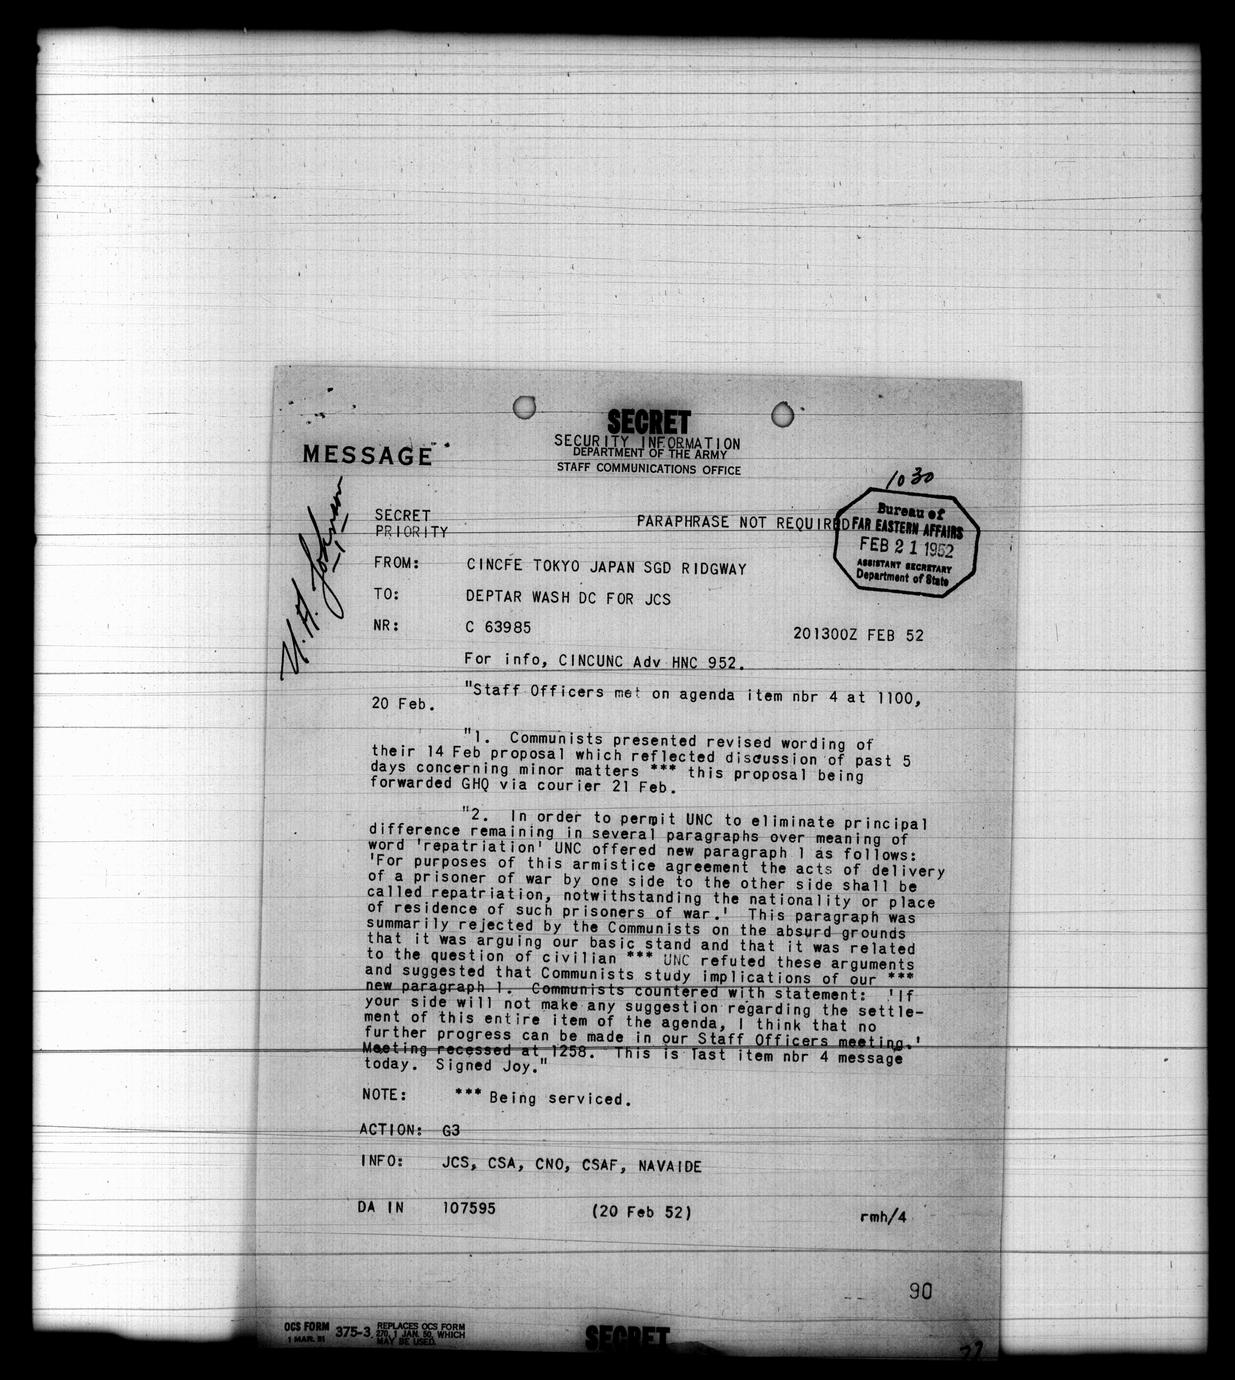 SECRET
SECURITY INFORMATION
DEPARTMENT OF THE ARMY
STAFF COMMUNICATIONS OFFICE
MESSAGE
U. A. Johnson
1030
SECRET
PRIORITY
PARAPHRASE NOT REQUIRED
Bureau of
FAR EASTERN AFFAIRS
FEB 21 1952
ASSISTANT SECRETARY
Department of State
FROM: CINCFE TOKYO JAPAN SGD RIDGWAY
TO: DEPTAR WASH DC FOR JCS
NR: C 63985 201300Z FEB 52
For info, CINCUNC Adv HNC 952.
"Staff Officers met on agenda item nbr 4 at 1100,
20 Feb.
"1. Communists presented revised wording of
their 14 Feb proposal which reflected discussion of past 5
days concerning minor matters *** this proposal being
forwarded GHQ via courier 21 Feb.
"2. In order to permit UNC to eliminate principal
difference remaining in several paragraphs over meaning of
word 'repatriation' UNC offered new paragraph 1 as follows:
'For purposes of this armistice agreement the acts of delivery
of a prisoner of war by one side to the other side shall be
called repatriation, notwithstanding the nationality or place
of residence of such prisoners of war.' This paragraph was
summarily rejected by the Communists on the absurd grounds
that it was arguing our basic stand and that it was related
to the question of civilian *** UNC refuted these arguments
and suggested that Communists study implications of our ***
new paragraph 1. Communists countered with statement: 'If
your side will not make any suggestion regarding the settle-
ment of this entire item of the agenda, I think that no
further progress can be made in our Staff Officers meeting.'
Meeting recessed at 1258. This is last item nbr 4 message
today. Signed Joy."
NOTE: *** Being serviced.
ACTION: G3
INFO: JCS, CSA, CNO, CSAF, NAVAIDE
DA IN 107595 (20 Feb 52) rmh/4
90
OCS FORM 375-3
1 MAR. 51
REPLACES OCS FORM
270, 1 JAN. 50, WHICH
MAY BE USED.
SECRET